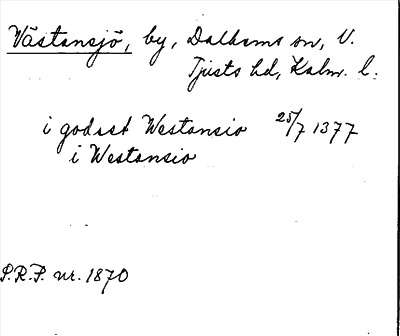 Västansjö, by, Dalhems sn, V.
Tjusts hd, Kalm. l.
i godset Westansio 25/7 1377
i Westansio
S.R.P. nr. 1870